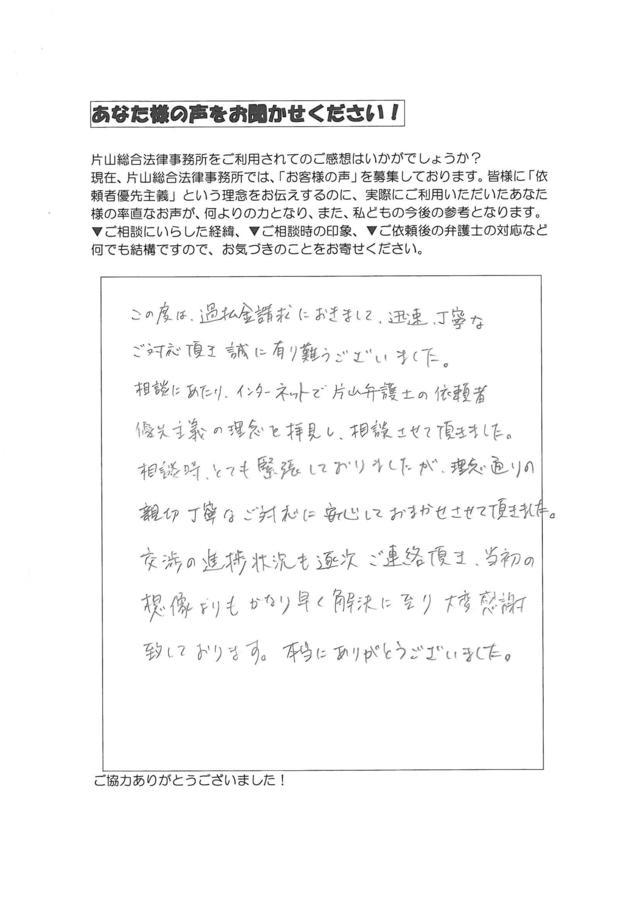 あなた様の声をお聞かせください！
片山総合法律事務所をご利用されてのご感想はいかがでしょうか？
現在、片山総合法律事務所では、「お客様の声」を募集しております。皆様に「依
頼者優先主義」という理念をお伝えするのに、実際にご利用いただいたあなた
様の率直なお声が、何よりの力となり、また、私どもの今後の参考となります。
▼ご相談にいらした経緯、▼ご相談時の印象、▼ご依頼後の弁護士の対応など
何でも結構ですので、お気づきのことをお寄せください。
この度は、過払金請求におきまして、迅速、丁寧な
ご対応頂き誠に有り難うございました。
相談にあたり、インターネットで片山弁護士の依頼者
優先主義の理念を拝見し、相談させて頂きました。
相談時、とても緊張しておりましたが、理念通りの
親切丁寧なご対応に安心しておまかせさせて頂きました。
交渉の進捗状況も逐次ご連絡頂き、当初の
想像よりもかなり早く解決に至り大変感謝
致しております。本当にありがとうございました。
ご協力ありがとうございました！